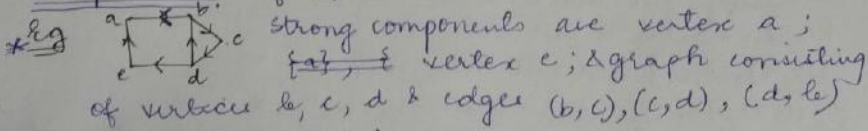 * Eg a b c d e strong components are vertex a ;
{a}, { vertex e ; & graph consisting
of vertices b, c, d & edges (b, c), (c, d), (d, b)